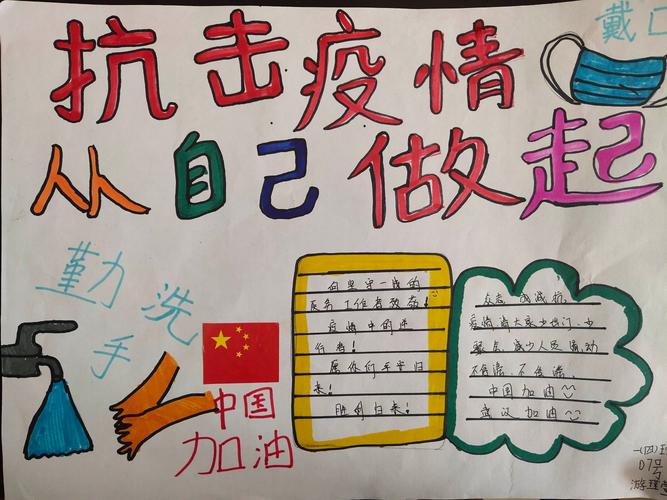 戴口
抗击疫情
从自己做起
勤洗
手
中国
加油
向坚守一线的
医务工作者致敬!
疫情中的逆
行者!
愿你们平安归
来!
胜利归来!
疫情,请大家少出门,少
聚会,减少人员流动
不信谣,不传谣,
中国加油
武汉加油
一(四)班
07号